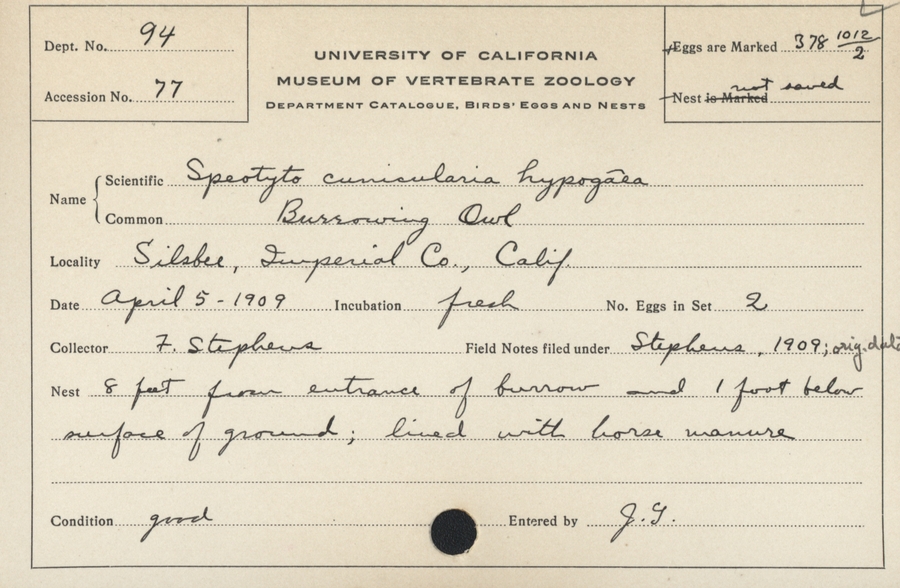 Dept. No. 94
UNIVERSITY OF CALIFORNIA
MUSEUM OF VERTEBRATE ZOOLOGY
DEPARTMENT CATALOGUE, BIRDS' EGGS AND NESTS
Eggs are Marked 378 1012/2
Accession No. 77
Nest is Marked not saved
Name
Scientific Speotyto cunicularia hypogaea
Common Burrowing Owl
Locality Silsbee, Imperial Co., Calif.
Date April 5 - 1909 Incubation fresh No. Eggs in Set 2
Collector F. Stephens Field Notes filed under Stephens, 1909; orig. data
Nest 8 feet from entrance of burrow and 1 foot below
surface of ground; lined with horse manure
Condition good Entered by J.G.